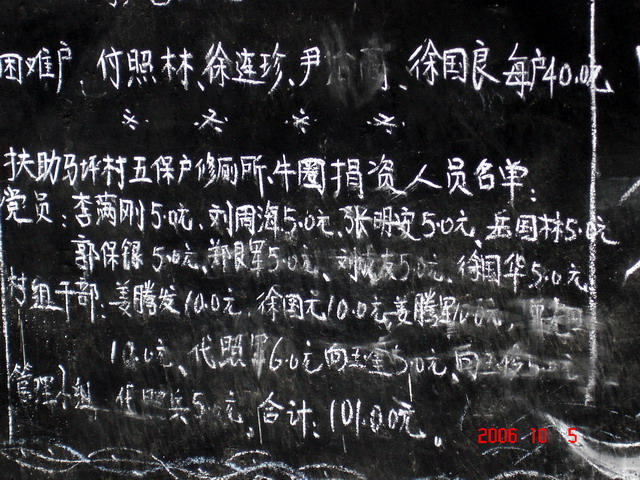 困难户:付照林、徐连珍、尹 、徐国良每户40.0元
※ ※ ※ ※
扶助马坪村五保户修厕所、牛圈捐资人员名单:
党员:李满刚5.0元、刘周海5.0元、张明安5.0元、岳国林5.0元
郭保银5.0元、郑良军5.0元、刘 友5.0元、徐国华5.0元
村组干部:姜腾发10.0元、徐国元10.0元、姜腾军10.0元、
10.0元、代照军6.0元向玉奎5.0元、向玉
管理小组 代照兵5.0元、合计:101.00元。
2006 10 5